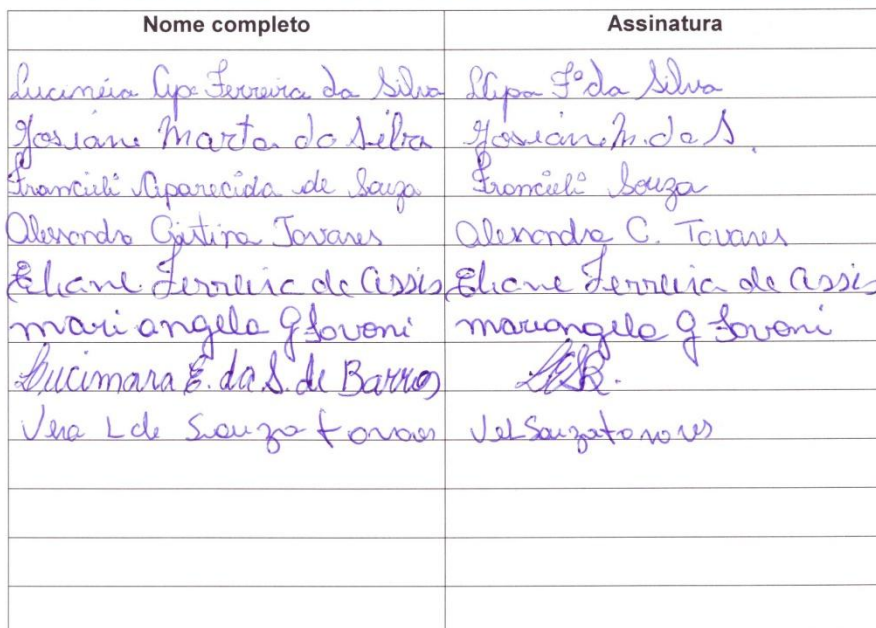 Nome completo Assinatura
Lucinéia Ap. Ferreira da Silva LApa Fº da Silva
Josiane Marta da Silva Josiane M. da S.
Francieli Aparecida de Souza Francieli Souza
Alessandra Cristina Tavares Alessandra C. Tavares
Eliane Ferreira de Assis Eliane Ferreira de Assis
mari angela G mariangela G
Lucimara E. da S. de Barros
Vera L de Souza tavares VeL Souza tavares